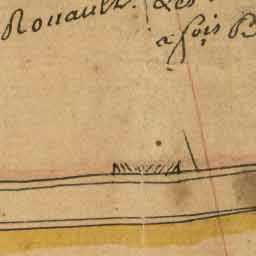 Rouault.
a fois B